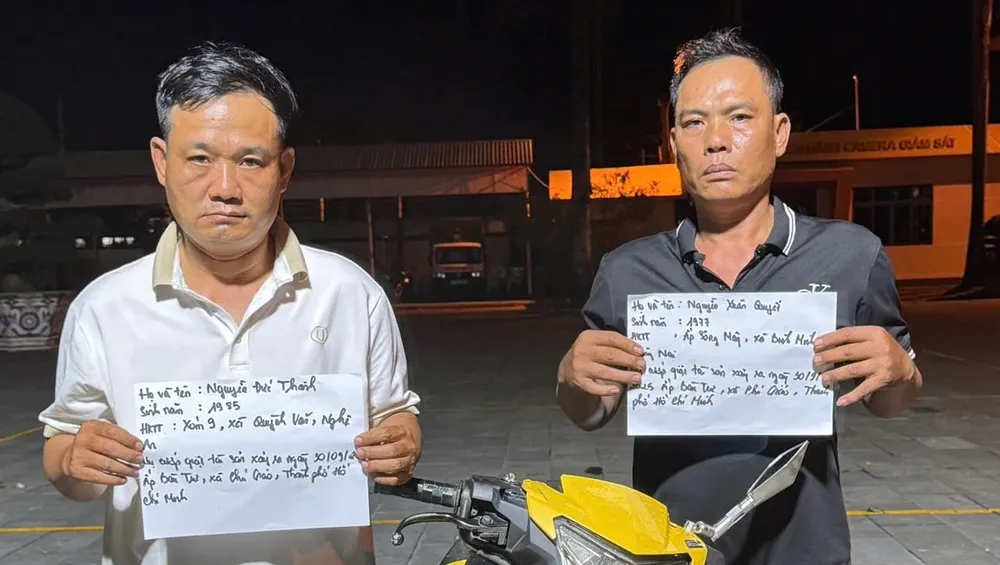 CAMERA GIÁM SÁT
Họ và tên : Nguyễn Đức Thanh
Sinh năm : 1985
HKTT : Xóm 9, xã Quỳnh Văn, Nghệ
An
cướp giật tài sản xảy ra ngày 30/09/
Ấp Bàu Tư, xã Phú Giáo, Thành phố Hồ
Chí Minh
Họ và tên : Nguyễn Xuân Quyết
Sinh năm : 1977
HKTT : Ấp Sông Mây, xã Bình Minh
Nai
cướp giật tài sản xảy ra ngày 30/9
Ấp Bàu Tư, xã Phú Giáo, Thành
phố Hồ Chí Minh